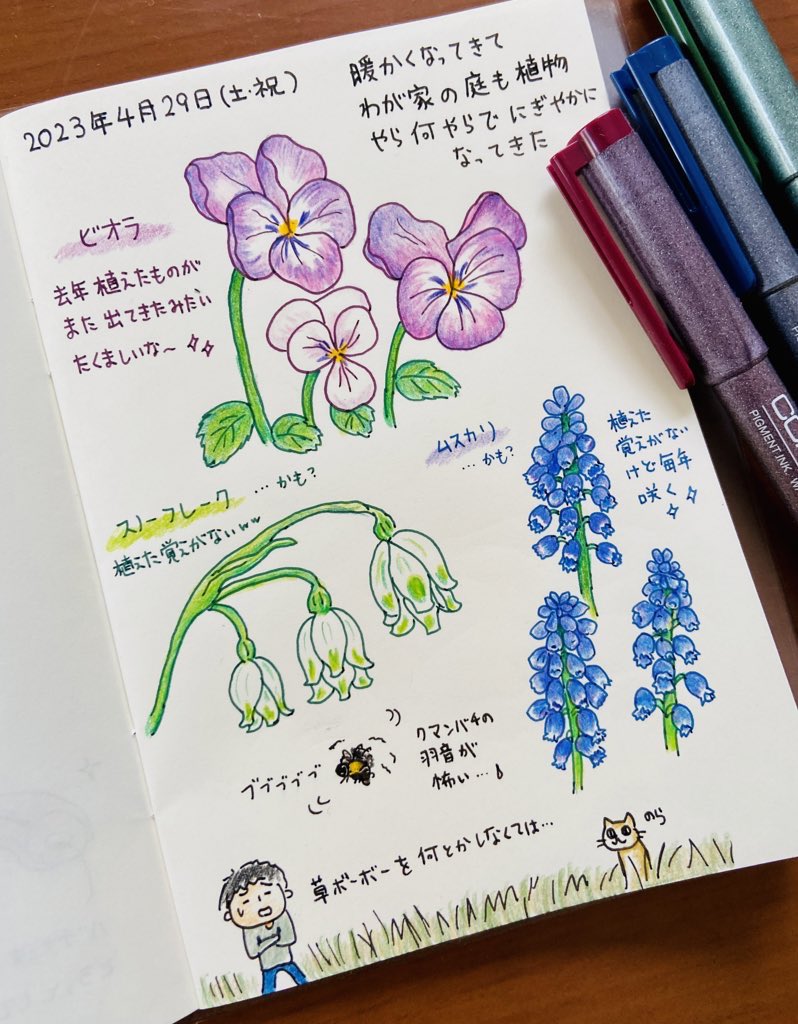 2023年4月29日(土・祝)
暖かくなってきて
わが家の庭も植物
やら何やらでにぎやかに
なってきた
ビオラ
去年植えたものが
また出てきたみたい
たくましいな〜
ムスカリ
…かも?
植えた
覚えがない
けど毎年
咲く
スノーフレーク …かも?
植えた覚えがないww
ブブブブブ
クマンバチの
羽音が
怖い…
草ボーボーを何とかしなくては…
のら
PIGMENT INK. W